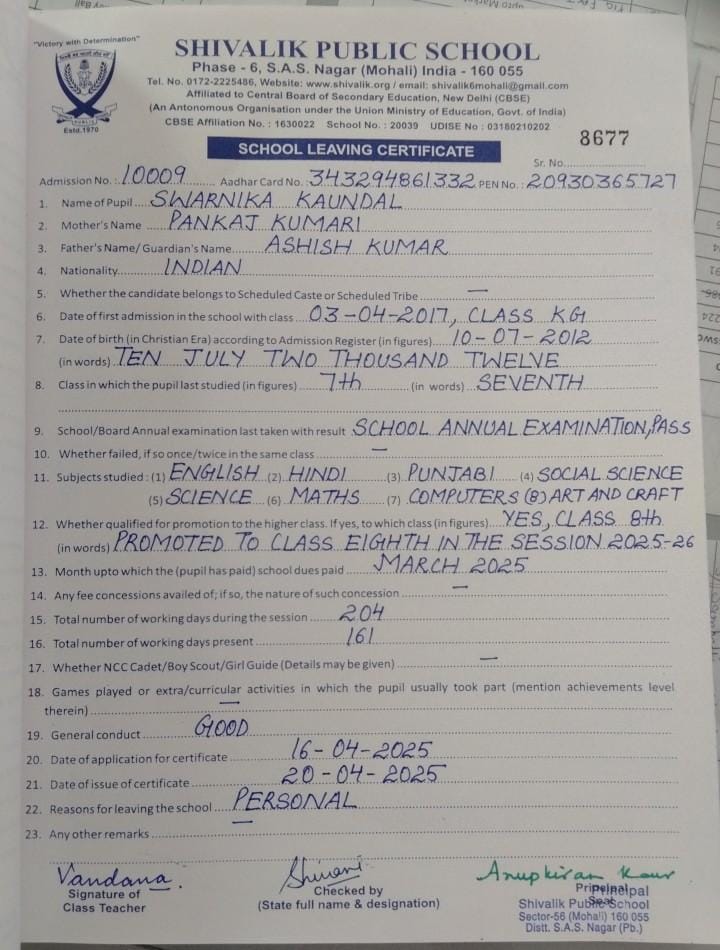 "Victory with Determination"
SHIVALIK PUBLIC SCHOOL
Phase - 6, S.A.S. Nagar (Mohali) India - 160 055
Tel. No. 0172-2225486, Website: www.shivalik.org / email: shivalik6mohali@gmail.com
Affiliated to Central Board of Secondary Education, New Delhi (CBSE)
(An Antonomous Organisation under the Union Ministry of Education, Govt. of India)
CBSE Affiliation No. : 1630022 School No. : 20039 UDISE No : 03180210202
Estd.1970
8677
SCHOOL LEAVING CERTIFICATE
Sr. No.
Admission No.: 10009 Aadhar Card No.: 343294861332 PEN No.: 20930365727
1. Name of Pupil SWARNIKA KAUNDAL
2. Mother's Name PANKAJ KUMARI
3. Father's Name/ Guardian's Name ASHISH KUMAR
4. Nationality INDIAN
5. Whether the candidate belongs to Scheduled Caste or Scheduled Tribe —
6. Date of first admission in the school with class 03-04-2017, CLASS KG
7. Date of birth (in Christian Era) according to Admission Register (in figures) 10-07-2012
(in words) TEN JULY TWO THOUSAND TWELVE
8. Class in which the pupil last studied (in figures) 7th (in words) SEVENTH
9. School/Board Annual examination last taken with result SCHOOL ANNUAL EXAMINATION, PASS
10. Whether failed, if so once/twice in the same class —
11. Subjects studied : (1) ENGLISH (2) HINDI (3) PUNJABI (4) SOCIAL SCIENCE
(5) SCIENCE (6) MATHS (7) COMPUTERS (8) ART AND CRAFT
12. Whether qualified for promotion to the higher class. If yes, to which class (in figures) YES, CLASS 8th
(in words) PROMOTED TO CLASS EIGHTH IN THE SESSION 2025-26
13. Month upto which the (pupil has paid) school dues paid MARCH 2025
14. Any fee concessions availed of; if so, the nature of such concession —
15. Total number of working days during the session 204
16. Total number of working days present 161
17. Whether NCC Cadet/Boy Scout/Girl Guide (Details may be given) —
18. Games played or extra/curricular activities in which the pupil usually took part (mention achievements level
therein) —
19. General conduct GOOD
20. Date of application for certificate 16-04-2025
21. Date of issue of certificate 20-04-2025
22. Reasons for leaving the school PERSONAL
23. Any other remarks —
Vandana. Shivani Anupkiran Kaur
Signature of
Class Teacher
Checked by
(State full name & designation)
Principal
Seal
Principal
Shivalik Public School
Sector-56 (Mohali) 160 055
Distt. S.A.S. Nagar (Pb.)